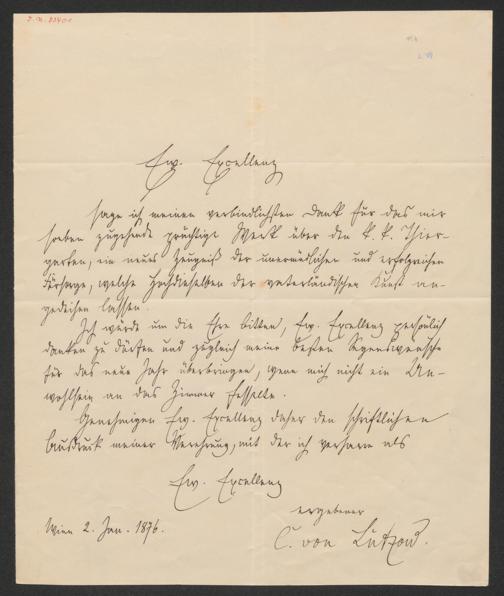 Ew. Excellenz
sage ich meinen verbindlichsten Dank für das mir
soeben zugehende prächtige Werk über den k. k. Thier-
garten, ein neues Zeugniß der unermüdlichen und erfolgreichen
Fürsorge, welche Hochdieselben der vaterländischen Kunst an-
gedeihen lassen.
Ich würde um die Ehre bitten, Ew. Excellenz persönlich
danken zu dürfen und zugleich meine besten Segenswünsche
für das neue Jahr überbringen, wenn mich nicht ein Un-
wohlsein an das Zimmer fesselte.
Genehmigen Ew. Excellenz daher den schriftlichen
Ausdruck meiner Verehrung, mit der ich verharre als
Ew. Excellenz
ergebener
Wien 2. Jan. 1876.
C. von Lützow.